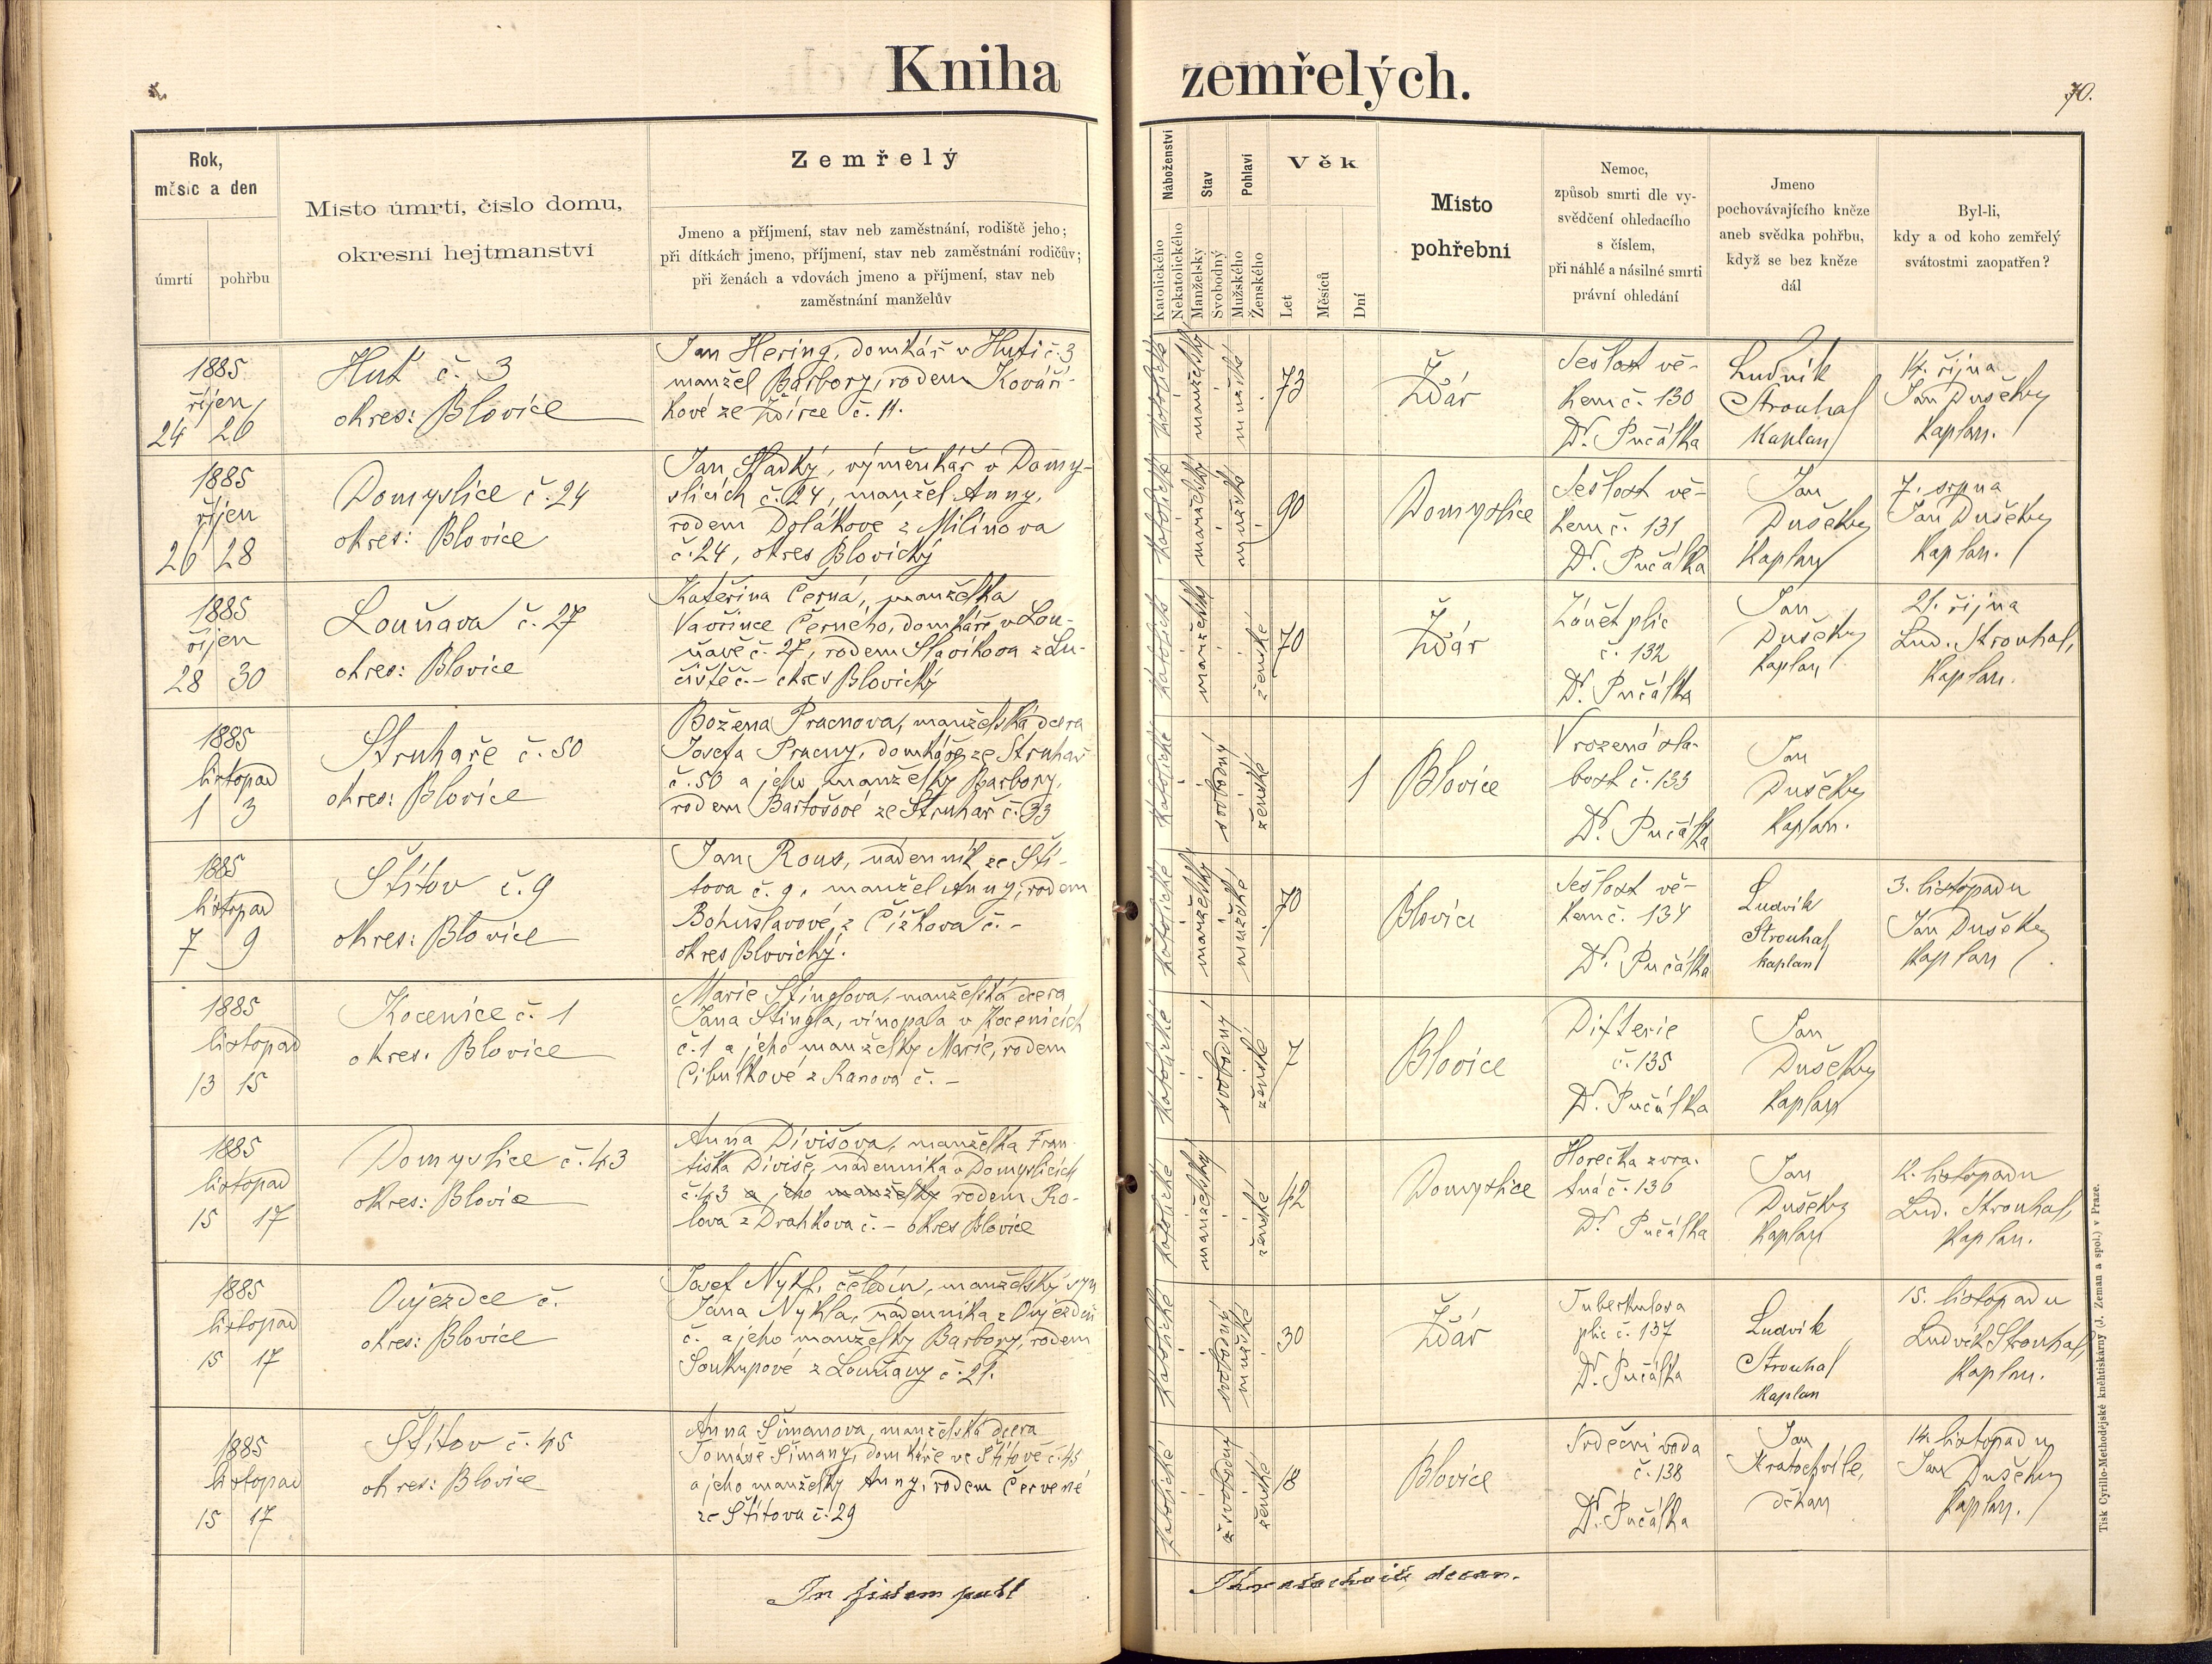 Kniha zemřelých.
70.
Rok,
měsíc a den
úmrtí
pohřbu
Místo úmrtí, číslo domu,
okresní hejtmanství
Zemřelý
Jmeno a příjmení, stav neb zaměstnání, rodiště jeho;
při dítkách jmeno, příjmení, stav neb zaměstnání rodičův;
při ženách a vdovách jmeno a příjmení, stav neb
zaměstnání manželův
Náboženství
Katolického
Nekatolického
Stav
Manželsky
Svobodný
Pohlaví
Mužského
Ženského
Věk
Let
Měsíců
Dní
Místo
pohřební
Nemoc,
způsob smrti dle vy-
svědčení ohledacího
s číslem,
při náhlé a násilné smrti
právní ohledání
Jmeno
pochovávajícího kněze
aneb svědka pohřbu,
když se bez kněze
dál
Byl-li,
kdy a od koho zemřelý
svátostmi zaopatřen?
1885
říjen
24 26
Huť č. 3
okres: Blovice
Jan Hering, domkář v Huti č. 3
manžel Barbory, rodem Kovaří-
kové ze Ždírce č. 11.
katolické
manželský
mužské
73
Žďár
Sešlost vě-
kem č. 130
Dr. Pučálka
Ludvík
Strouhal
Kaplan
14. října
Jan Dušek
Kaplan.
1885
říjen
26 28
Domyslice č. 24
okres: Blovice
Jan Sladký, výměnkář v Domy-
slicích č. 24, manžel Anny,
rodem Dolákové z Milínova
č. 24, okres Blovický
katolické
manželský
mužské
90
Domyslice
Sešlost vě-
kem č. 131
Dr. Pučálka
Jan
Dušek
Kaplan
7. srpna
Jan Dušek
Kaplan.
1885
říjen
28 30
Louňava č. 27
okres: Blovice
Kateřina Černá, manželka
Vavřince Černého, domkáře v Lou-
ňavě č. 27, rodem Slavíkova z Lu-
čiště č. - okres Blovický
katolické
manželský
ženské
70
Žďár
Zánět plic
č. 132
Dr. Pučálka
Jan
Dušek
Kaplan
21. října
Lud. Strouhal,
Kaplan.
1885
listopad
1 3
Struhaře č. 50
okres: Blovice
Božena Pracnova, manželská dcera
Josefa Pracny, domkáře ze Struhař
č. 50 a jeho manželky Barbory,
rodem Bartošové ze Struhař č. 33
katolické
svobodný
ženské
1
Blovice
Vrozená sla-
bost č. 133
Dr. Pučálka
Jan
Dušek
Kaplan.
1885
listopad
7 9
Štítov č. 9
okres: Blovice
Jan Rous, nádenník ze Ští-
tova č. 9, manžel Anny, rodem
Bohuslavové z Čížkova č. -
okres Blovický.
katolické
manželský
mužské
70
Blovice
Sešlost vě-
kem č. 134
Dr. Pučálka
Ludvík
Strouhal
kaplan
3. listopadu
Jan Dušek
Kaplan
1885
listopad
13 15
Kocenice č. 1
okres: Blovice
Marie Štinglova, manželská dcera
Jana Štingla, vinopala v Kocenicích
č. 1 a jeho manželky Marie, rodem
Cibulkové z Ranova č. -
katolické
svobodný
ženské
7
Blovice
Difterie
č. 135
Dr. Pučálka
Jan
Dušek
Kaplan
1885
listopad
15 17
Domyslice č. 43
okres: Blovice
Anna Divišova, manželka Fran-
tiška Diviše, nádenníka v Domyslicích
č. 43 a jeho manželky rodem Ko-
lova z Drahkova č. - okres Blovice
katolické
manželský
ženské
42
Domyslice
Horečka zvra-
tná č. 136
Dr. Pučálka
Jan
Dušek
Kaplan
12. listopadu
Lud. Strouhal,
Kaplan.
1885
listopad
15 17
Oujezdce č.
okres: Blovice
Josef Nykl, čeledín, manželský syn
Jana Nykla, nádenníka z Oujezdce
č. a jeho manželky Barbory, rodem
Soukupové z Louňavy č. 21.
katolické
svobodný
mužské
30
Žďár
Tuberkulosa
plic č. 137
Dr. Pučálka
Ludvík
Strouhal
Kaplan
15. listopadu
Ludvík Strouhal,
Kaplan.
1885
listopad
15 17
Štítov č. 45
okres: Blovice
Anna Šimanova, manželská dcera
Tomáše Šimany, domkáře ve Štítově č. 45
a jeho manželky Anny, rodem Červené
ze Štítova č. 29
katolické
svobodný
ženské
18
Blovice
Srdeční voda
č. 138
Dr. Pučálka
Jan
Kratochvíle,
děkan
14. listopadu
Jan Dušek
Kaplan.
In fidem publ
decan.
Tisk Cyrillo-Methodějské kněhtiskárny (J. Zeman a spol.) v Praze.